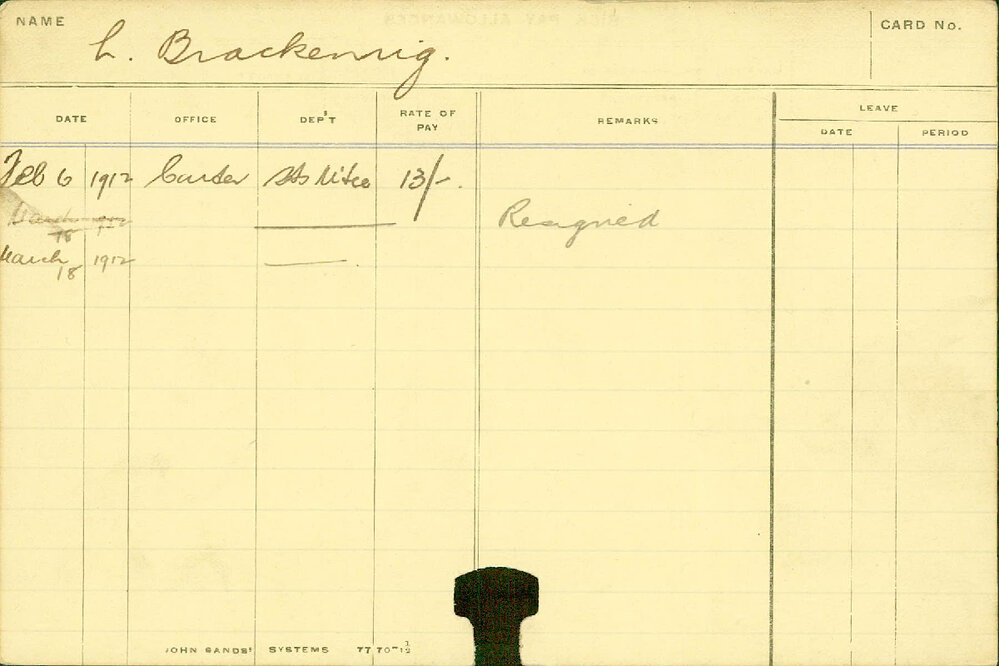 NAME
L. Brackenrig.
CARD No.
DATE OFFICE DEP'T RATE OF PAY REMARKS LEAVE
DATE PERIOD
Feb 6 1912 Carter 13/-.
March 18 1912 Resigned
March 18 1912
JOHN SANDS' SYSTEMS 77 70